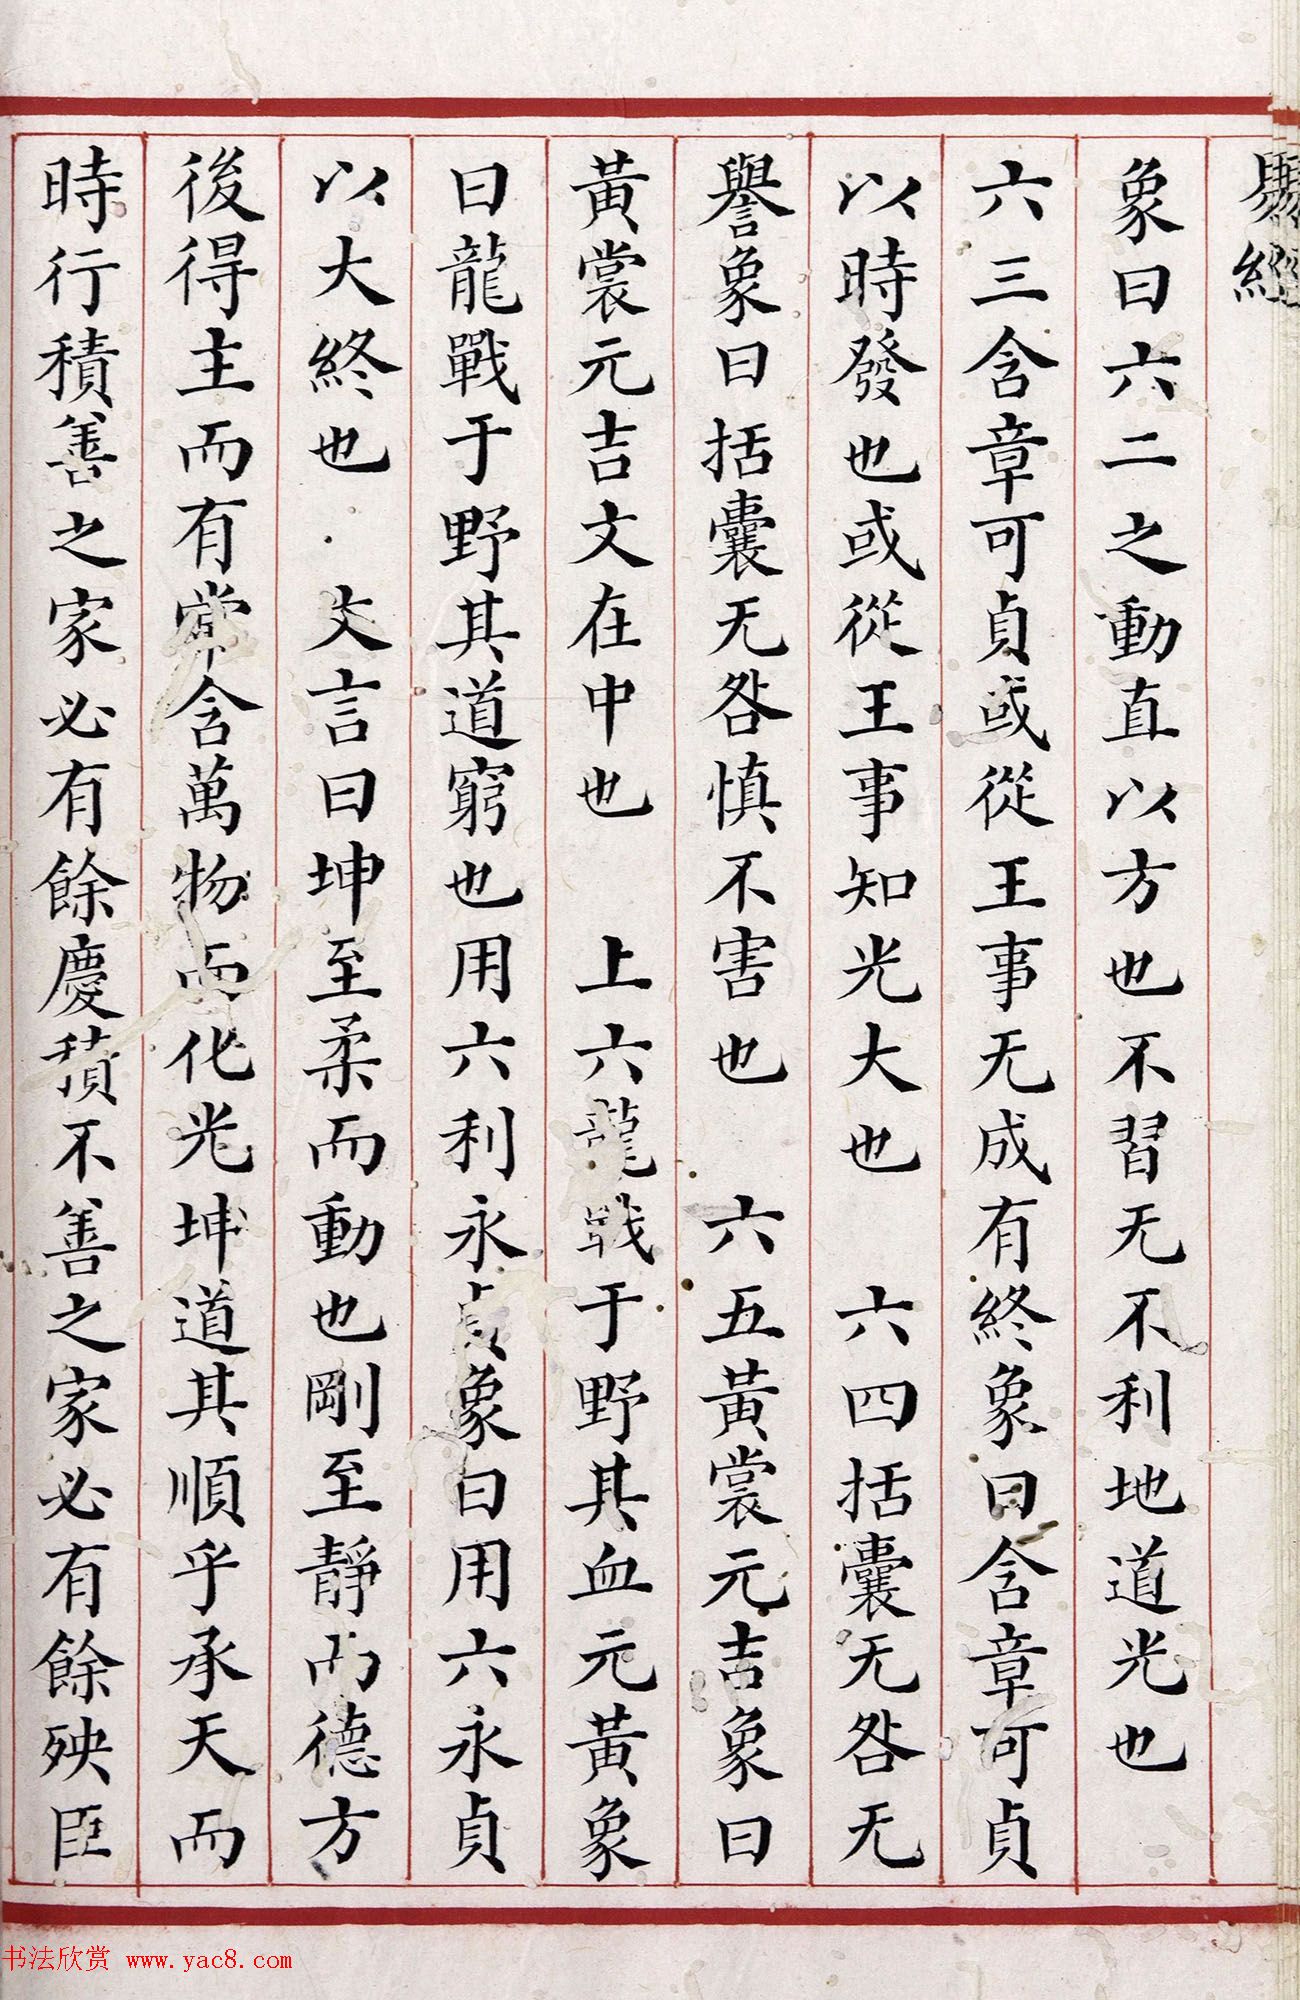 易經
象曰六二之動直以方也不習无不利地道光也
六三含章可貞或從王事无成有終象曰含章可貞
以時發也或從王事知光大也　六四括囊无咎无
譽象曰括囊无咎慎不害也　六五黃裳元吉象曰
黃裳元吉文在中也　上六龍戰于野其血元黃象
曰龍戰于野其道窮也用六利永貞象曰用六永貞
以大終也　文言曰坤至柔而動也剛至靜而德方
後得主而有常含萬物而化光坤道其順乎承天而
時行積善之家必有餘慶積不善之家必有餘殃臣
书法欣赏 www.yac8.com